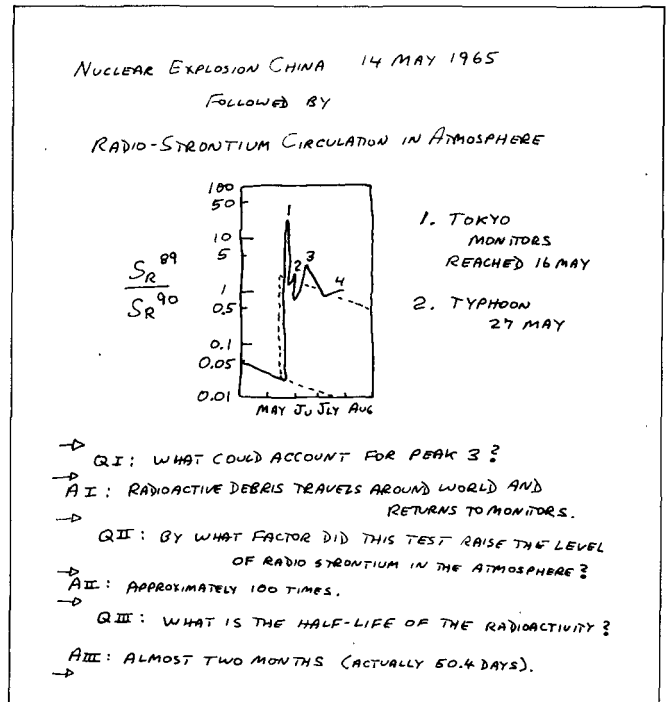 NUCLEAR EXPLOSION CHINA 14 MAY 1965
FOLLOWED BY
RADIO-STRONTIUM CIRCULATION IN ATMOSPHERE
100
50
10
5
1
0.5
0.1
0.05
0.01
SR 89
SR 90
1
2
3
4
MAY JU JLY AUG
1. TOKYO
MONITORS
REACHED 16 MAY
2. TYPHOON
27 MAY
→ Q I: WHAT COULD ACCOUNT FOR PEAK 3?
→ A I: RADIOACTIVE DEBRIS TRAVELS AROUND WORLD AND
RETURNS TO MONITORS.
→ Q II: BY WHAT FACTOR DID THIS TEST RAISE THE LEVEL
OF RADIO STRONTIUM IN THE ATMOSPHERE?
→ A II: APPROXIMATELY 100 TIMES.
→ Q III: WHAT IS THE HALF-LIFE OF THE RADIOACTIVITY?
A III: ALMOST TWO MONTHS (ACTUALLY 50.4 DAYS).
→